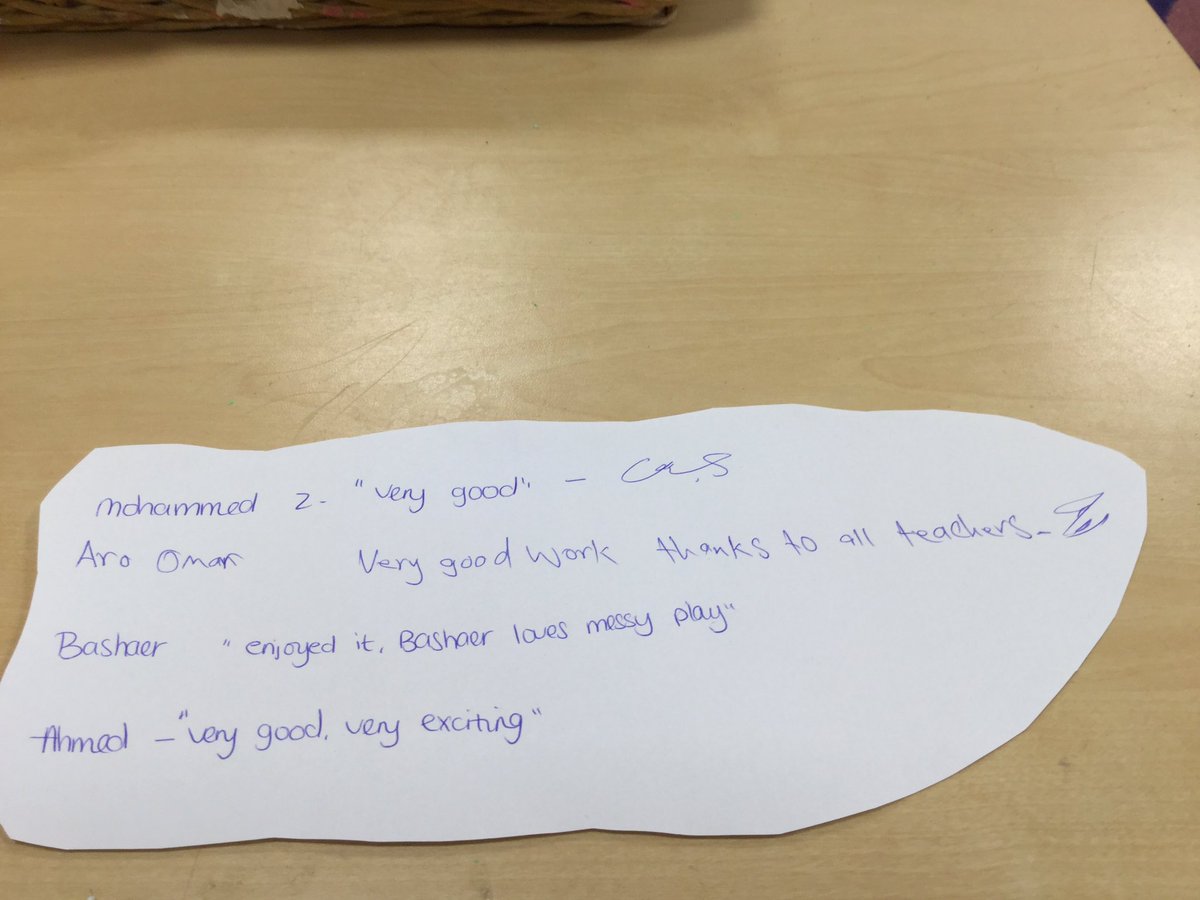 Mohammed Z- "very good" -
Aro Omar Very good work thanks to all teachers-
Bashaer "enjoyed it, Bashaer loves messy play"
Ahmed - "very good, very exciting"